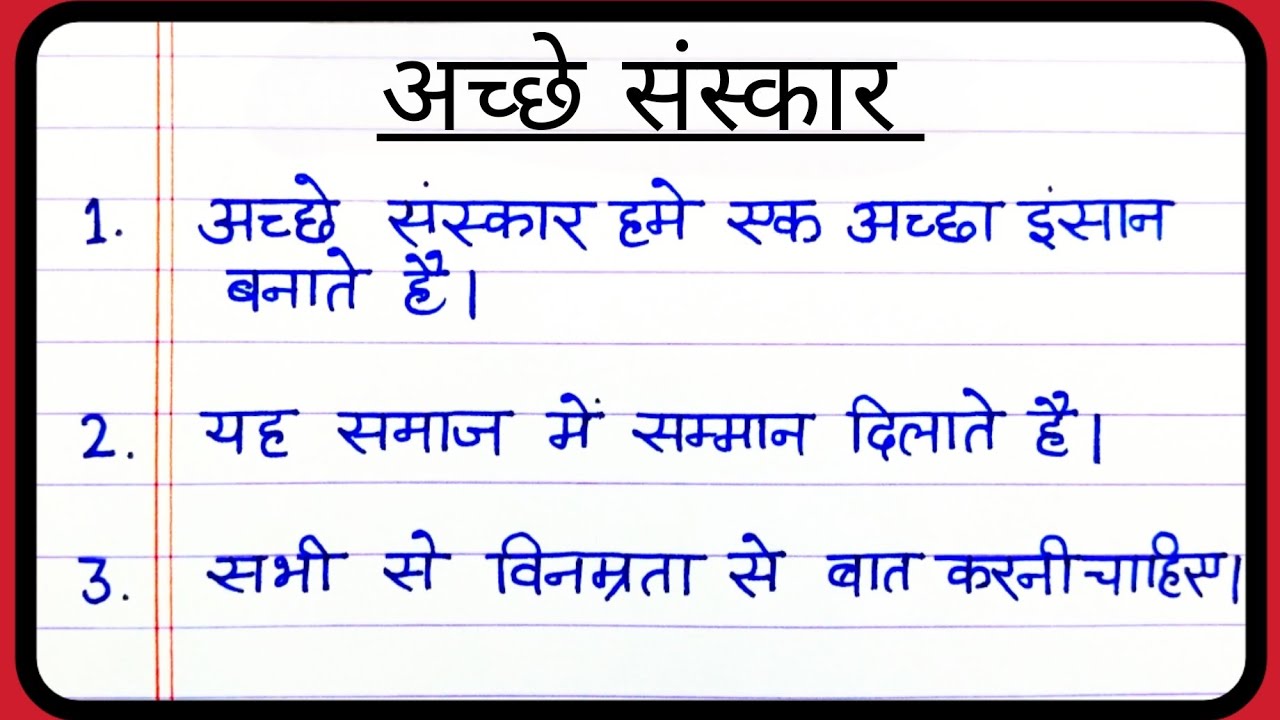 अच्छे संस्कार
1. अच्छे संस्कार हमे एक अच्छा इंसान
बनाते है।
2. यह समाज में सम्मान दिलाते है।
3. सभी से विनम्रता से बात करनी चाहिए।